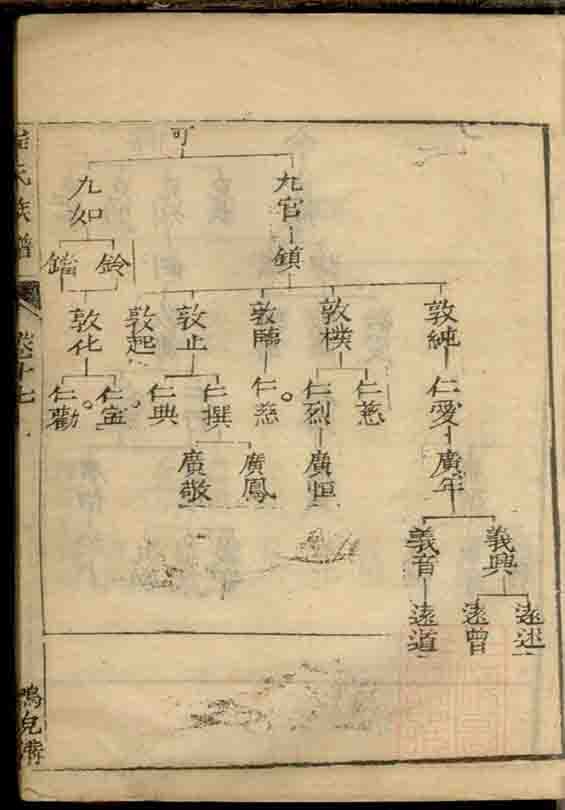 可
九官 九如
鎮 鈴
敦純 敦樸 敦臨 敦止 敦起 敦化
仁愛 仁慈 仁烈 仁慈 仁撰 仁典 仁寍 仁勸
廣年 廣恒 廣鳳 廣敬
義興 義首
遠述 遠曾 遠道
氏族譜
卷十七
鴨兒溝